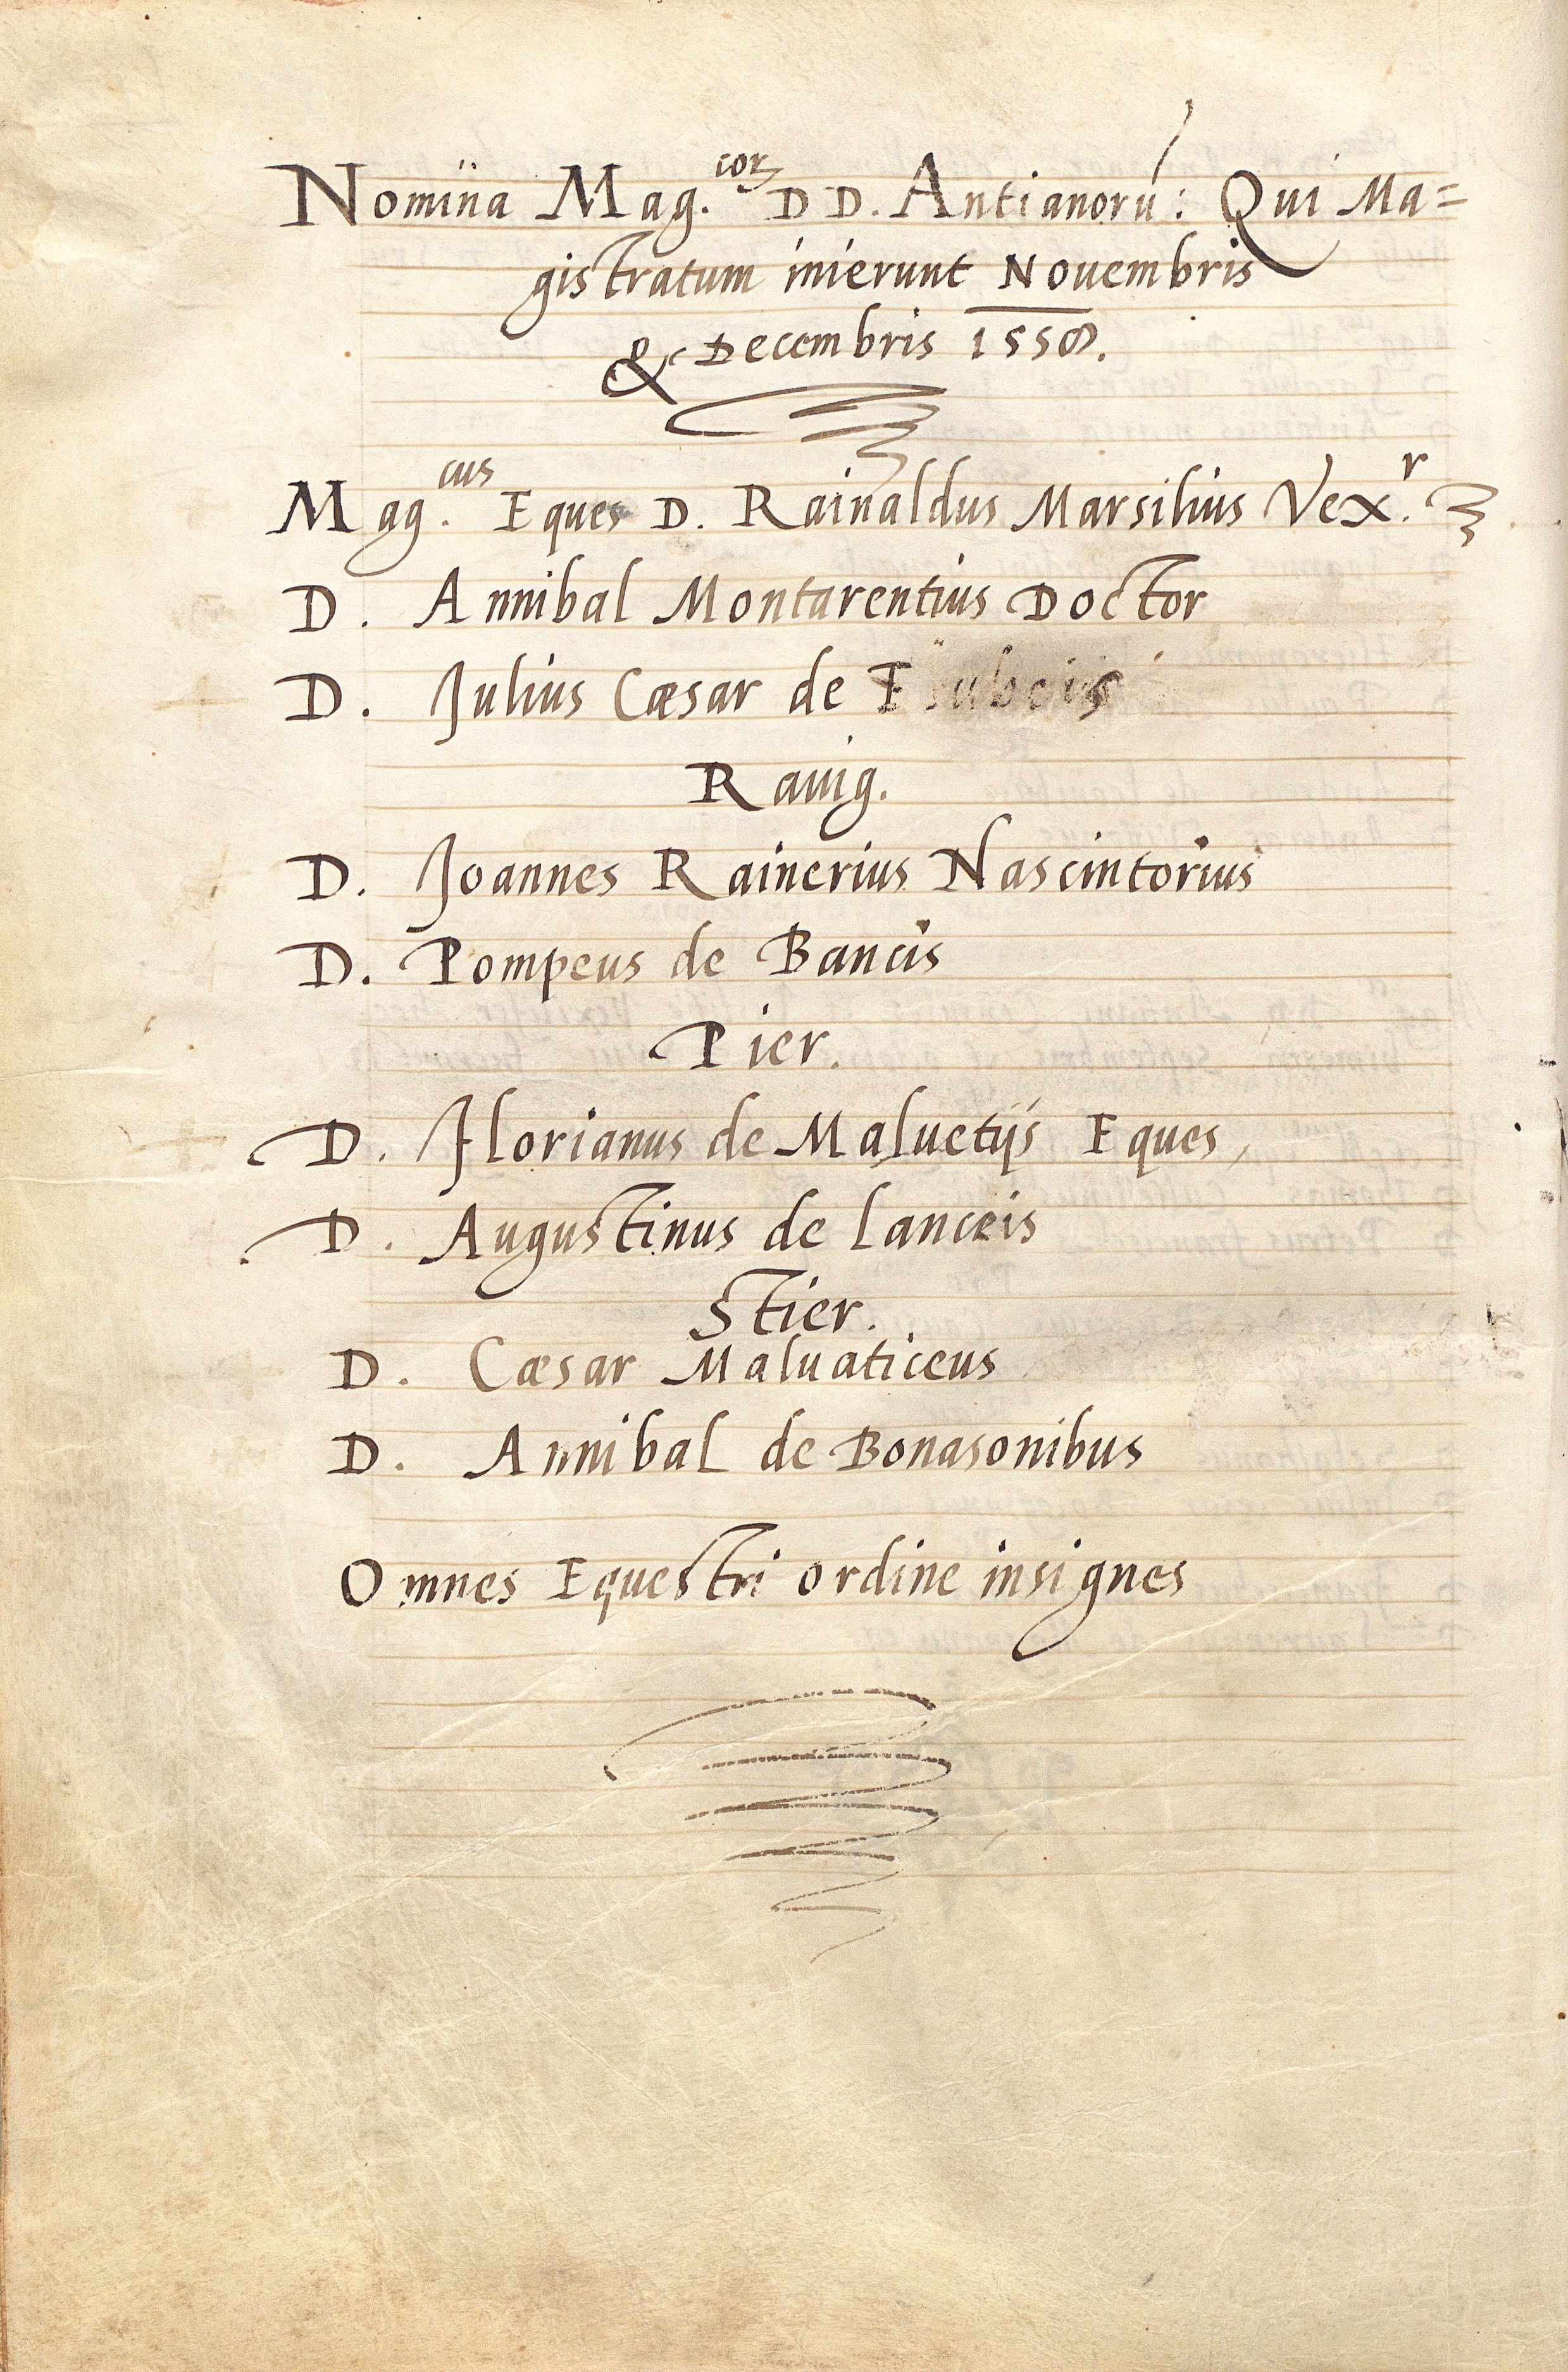 Nomina Mag.corꝫ DD. Antianorú: Qui Ma=
gistratum inierunt Nouembris
& Decembris 1558.
Mag.cus Eques D. Rainaldus Marsilius Vex.r
D. Annibal Montarentius Doctor
D. Julius Cæsar de
Rauig.
D. Joannes Rainerius Nascintorius
D. Pompeus de Bancis
Pier.
D. Florianus de Maluetijs Eques
D. Augustinus de Lanceis
Stier.
D. Cæsar Maluaticeus
D. Annibal de Bonasonibus
Omnes Equestri ordine insignes